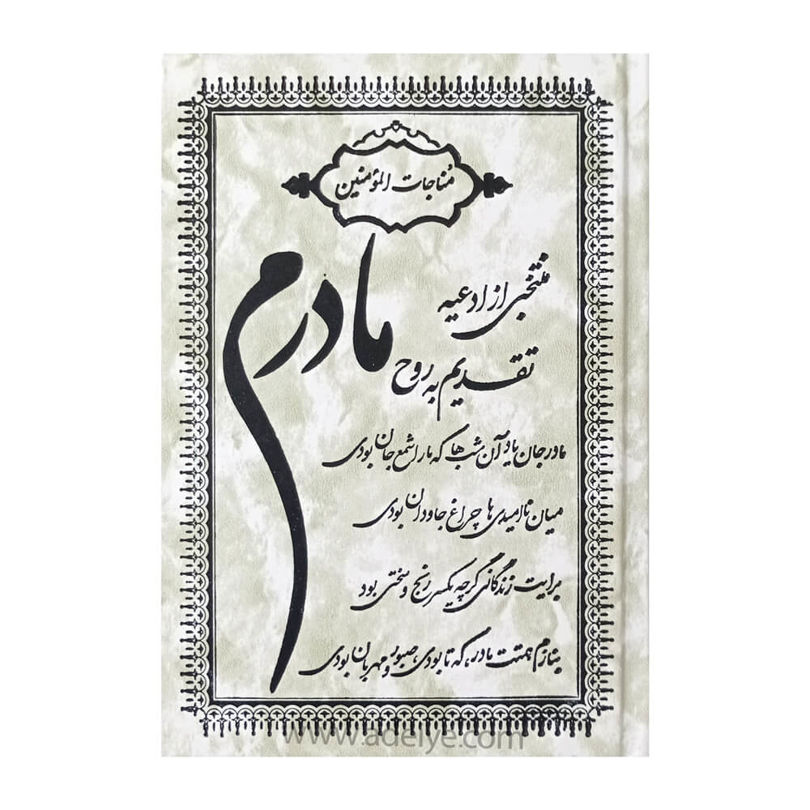 مناجات المؤمنین
منتخبی از ادعیه
تقدیم به روح
مادرم
مادر جان یاد آن شب‌ها که ما را شمع جان بودی
میان ناامیدی‌ها چراغ جاودان بودی
برایت زندگانی گرچه یکسر رنج و سختی بود
بنازم همتت مادر، که تا بودی، صبور و مهربان بودی
www.adelye.com